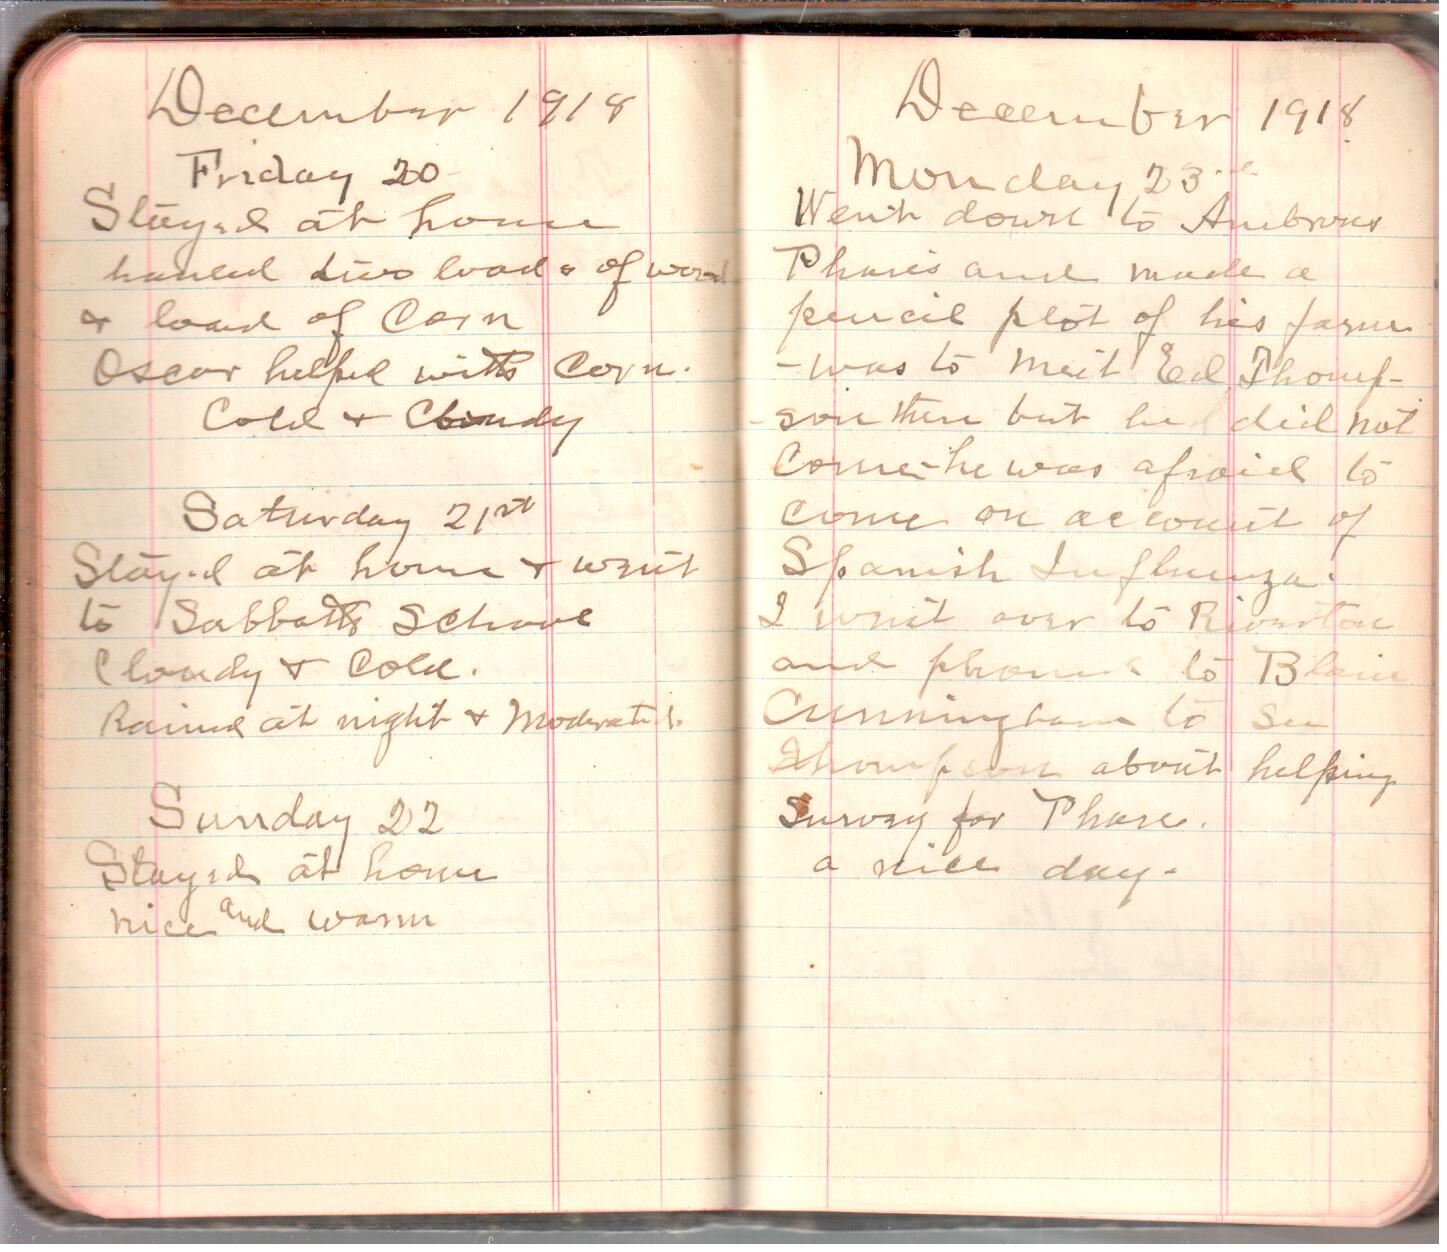 December 1918
Friday 20
Stayed at home
hauled two loads of wood
& load of Corn
Oscar helped with Corn.
Cold & Cloudy
Saturday 21st
Stayed at home & went
to Sabbath School
Cloudy & Cold.
Rained at night & Moderated.
Sunday 22
Stayed at home
nice and warm
December 1918
Monday 23rd
Went down to Ambrous
Phares and made a
pencil plot of his farm
- was to meet Ed Thomp-
-son there but he did not
Come - he was afraid to
come on account of
Spanish Influenza.
I went over to Riverton
and phoned to Blain
Cunningham to see
Thompson about helping
Survey for Phare.
a nice day -